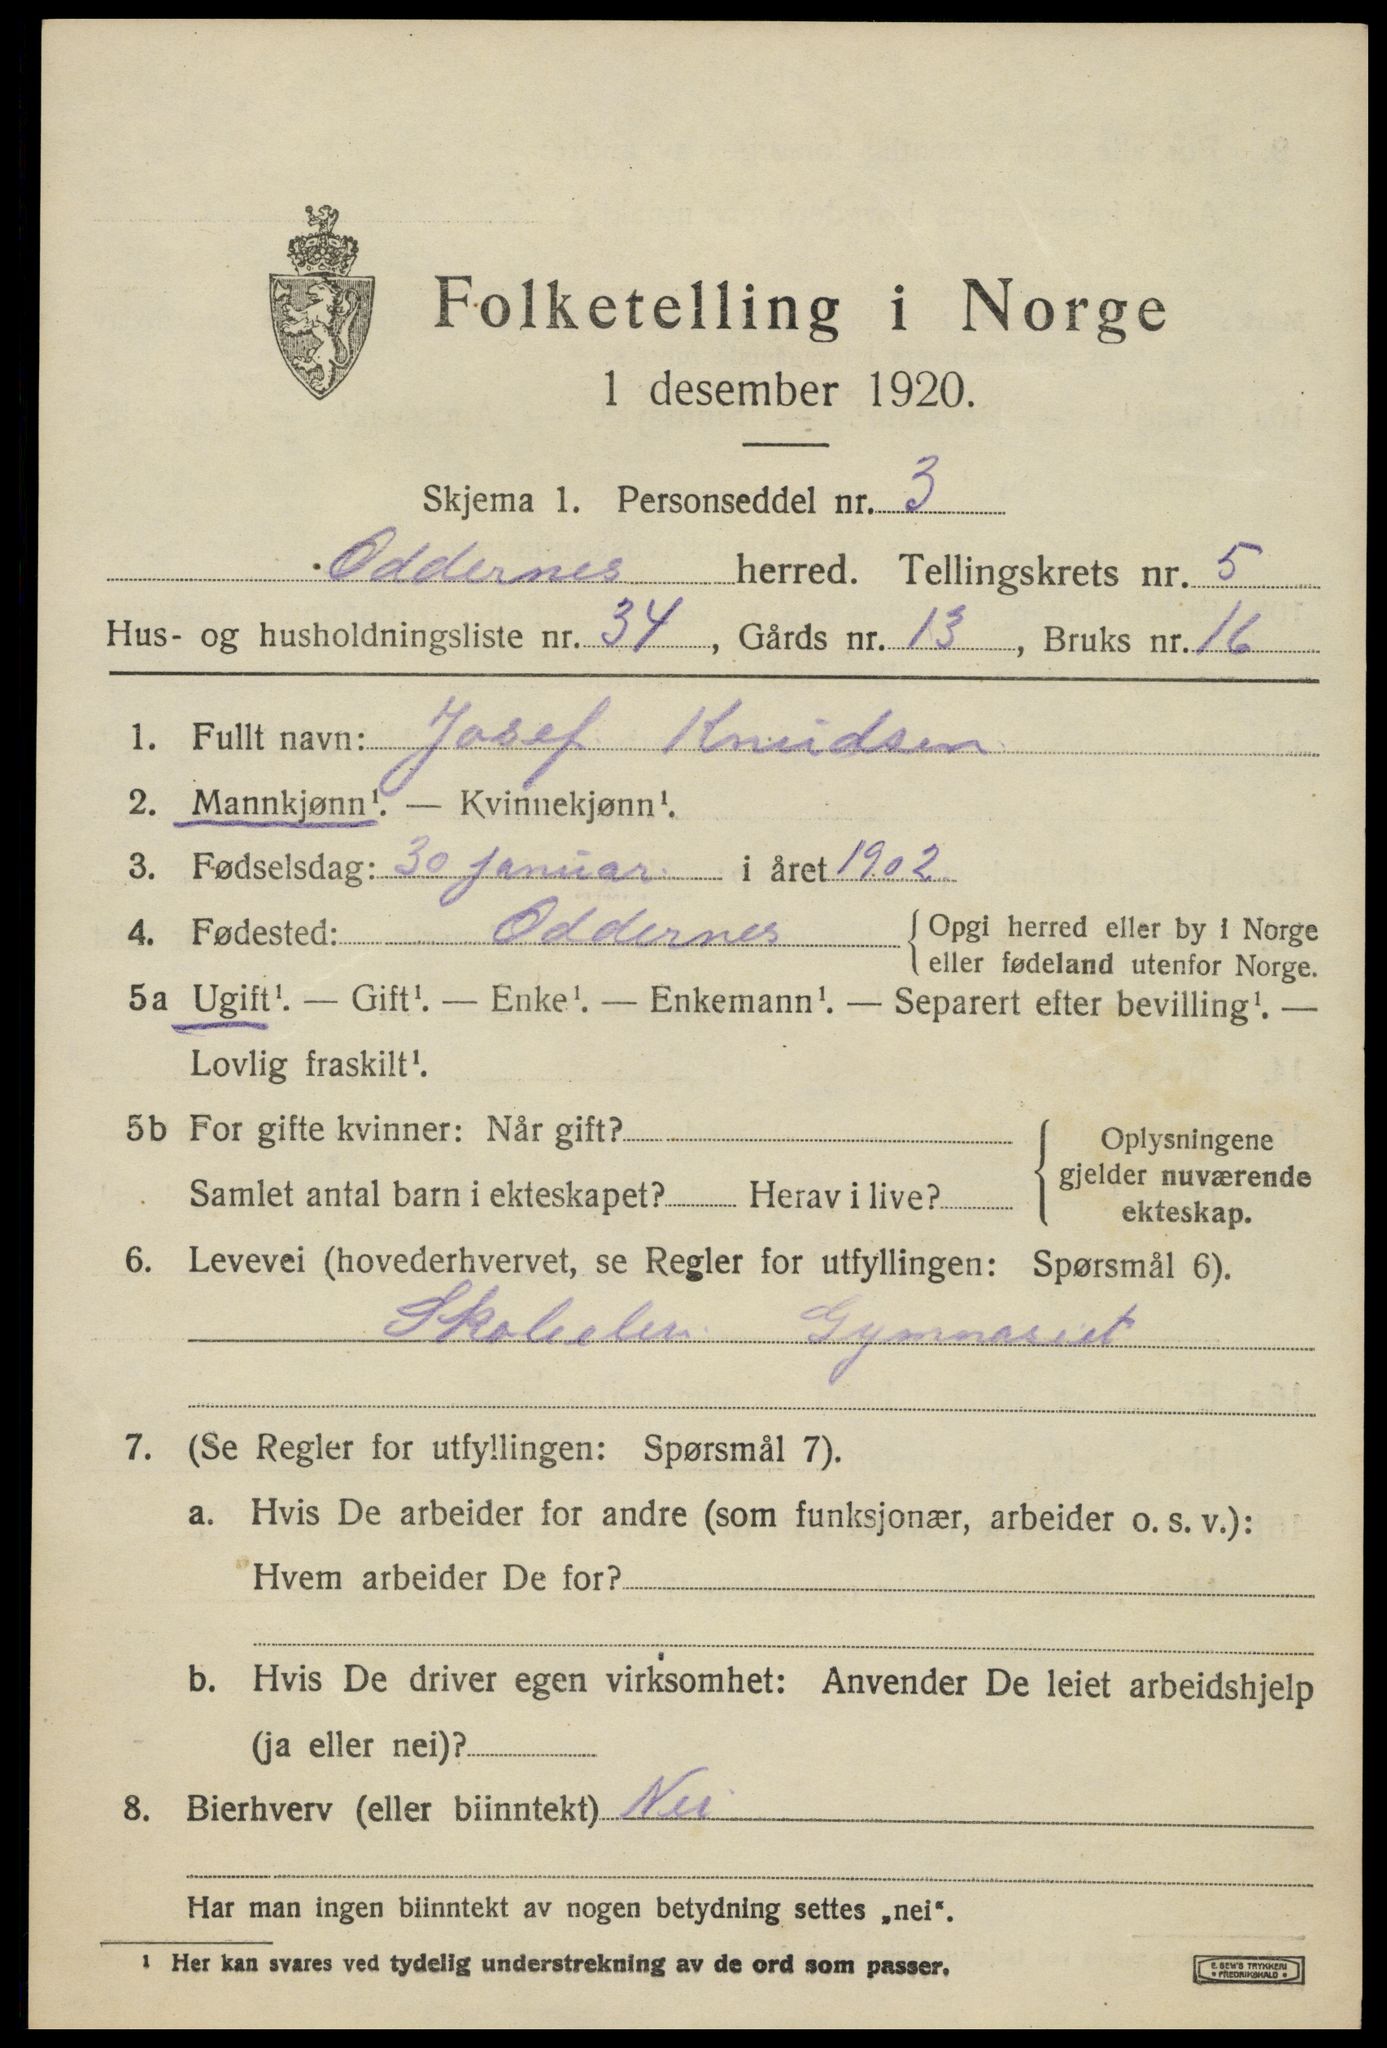 Folketelling i Norge
1 desember 1920.
Skjema 1. Personseddel nr. 3
Oddernes herred. Tellingskrets nr. 5
Hus- og husholdningsliste nr. 34, Gårds nr. 13, Bruks nr. 16
1. Fullt navn: Josef Knudsen
2. Mannkjønn¹. — Kvinnekjønn¹.
3. Fødselsdag: 30 januar i året 1902
4. Fødested: Oddernes { Opgi herred eller by i Norge
eller fødeland utenfor Norge.
5a Ugift¹. — Gift¹. — Enke¹. — Enkemann¹. — Separert efter bevilling¹. —
Lovlig fraskilt¹.
5b For gifte kvinner: Når gift?
Samlet antal barn i ekteskapet? Herav i live?
{ Oplysningene
gjelder nuværende
ekteskap.
6. Levevei (hovederhvervet, se Regler for utfyllingen: Spørsmål 6).
Skoleelev Gymnasiet
7. (Se Regler for utfyllingen: Spørsmål 7).
a. Hvis De arbeider for andre (som funksjonær, arbeider o. s. v.):
Hvem arbeider De for?
b. Hvis De driver egen virksomhet: Anvender De leiet arbeidshjelp
(ja eller nei)?
8. Bierhverv (eller biinntekt) Nei
Har man ingen biinntekt av nogen betydning settes „nei“.
¹ Her kan svares ved tydelig understrekning av de ord som passer.
E. SEM'S TRYKKERI
• FREDRIKSHALD •